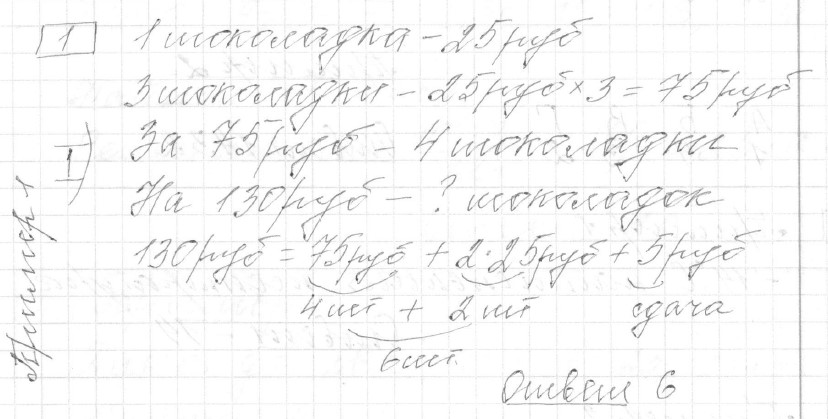 1 1 шоколадка - 25 руб
3 шоколадки - 25 руб × 3 = 75 руб
I) За 75 руб - 4 шоколадки
На 130 руб - ? шоколадок
130 руб = 75 руб + 2·25 руб + 5 руб
4 шт + 2 шт сдача
6 шт.
Ответ 6
Пример 1